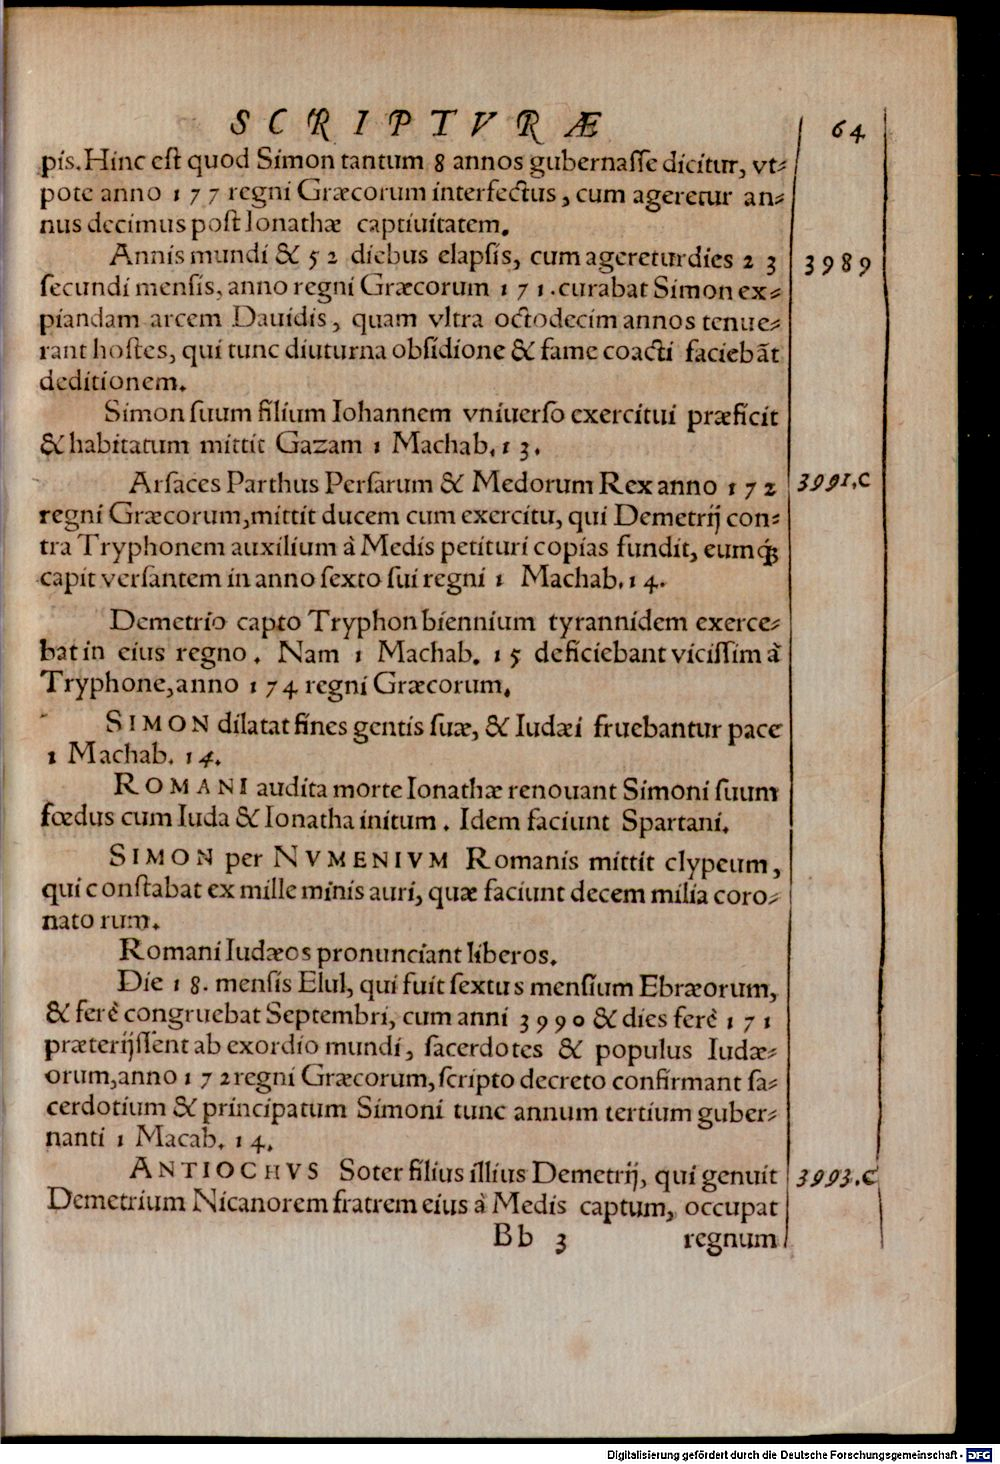 SCRIPTVRÆ 64
pis. Hinc est quod Simon tantum 8 annos gubernasse dicitur, vt-
pote anno 177 regni Græcorum interfectus, cum ageretur an-
nus decimus post Ionathæ captiuitatem.
Annis mundi & 52 diebus elapsis, cum ageretur dies 23 3989
secundi mensis, anno regni Græcorum 171. curabat Simon ex-
piandam arcem Dauidis, quam vltra octodecim annos tenue-
rant hostes, qui tunc diuturna obsidione & fame coacti faciebāt
deditionem.
Simon suum filium Iohannem vniuerso exercitui præficit
& habitatum mittit Gazam 1 Machab. 13.
Arsaces Parthus Persarum & Medorum Rex anno 172 3991.C
regni Græcorum, mittit ducem cum exercitu, qui Demetrij con-
tra Tryphonem auxilium à Medis petituri copias fundit, eumq́;
capit versantem in anno sexto sui regni 1 Machab. 14.
Demetrio capto Tryphon biennium tyrannidem exerce-
bat in eius regno. Nam 1 Machab. 15 deficiebant vicissim à
Tryphone, anno 174 regni Græcorum.
SIMON dilatat fines gentis suæ, & Iudæi fruebantur pace
1 Machab. 14.
ROMANI audita morte Ionathæ renouant Simoni suum
fœdus cum Iuda & Ionatha initum. Idem faciunt Spartani.
SIMON per NVMENIVM Romanis mittit clypeum,
qui constabat ex mille minis auri, quæ faciunt decem milia coro-
nato rum.
Romani Iudæos pronunciant liberos.
Die 18. mensis Elul, qui fuit sextus mensium Ebræorum,
& ferè congruebat Septembri, cum anni 3990 & dies ferè 171
præterijssent ab exordio mundi, sacerdotes & populus Iudæ-
orum, anno 172 regni Græcorum, scripto decreto confirmant sa-
cerdotium & principatum Simoni tunc annum tertium guber-
nanti 1 Macab. 14.
ANTIOCHVS Soter filius illius Demetrij, qui genuit 3993.C
Demetrium Nicanorem fratrem eius à Medis captum, occupat
Bb 3 regnum
Digitalisierung gefördert durch die Deutsche Forschungsgemeinschaft - DFG